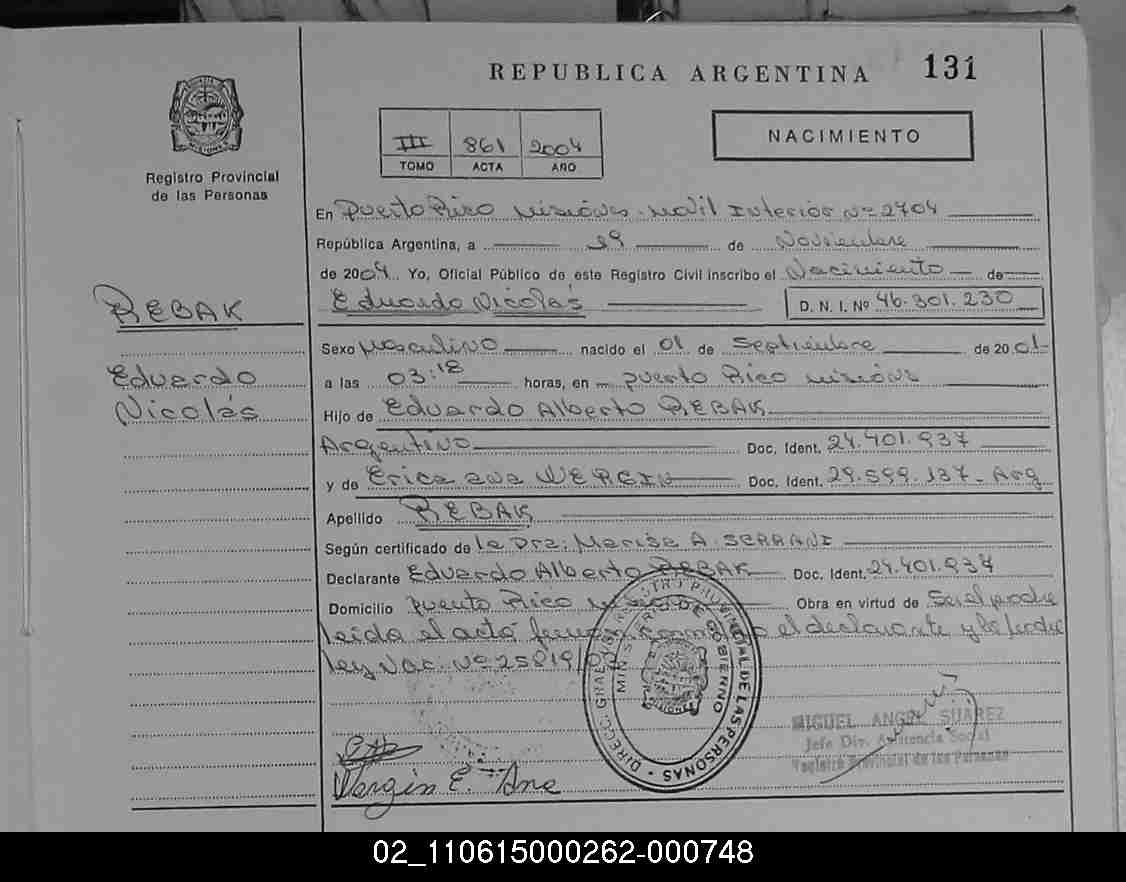 REPUBLICA ARGENTINA 131
III 861 2004
TOMO ACTA AÑO
NACIMIENTO
Registro Provincial
de las Personas
En Puerto Rico Misiones. Movil Interior Nº 2704
República Argentina, a 29 de Noviembre
de 2004 Yo, Oficial Público de este Registro Civil inscribo el Nacimiento de
Eduardo Nicolás D. N. I. Nº 46.301.230
REBAK
Sexo Masculino nacido el 01 de Septiembre de 2001
Eduardo
a las 03:18 horas, en Puerto Rico Misiones
Nicolás
Hijo de Eduardo Alberto REBAK
Argentino Doc. Ident. 24.401.937
y de Erica Ana WERGIN Doc. Ident. 29.599.137 - Arg
Apellido REBAK
Según certificado de la Dra: Marisa A. SERRANI
Declarante Eduardo Alberto REBAK Doc. Ident. 24.401.937
Domicilio Puerto Rico Obra en virtud de Ser el padre
leida el acta el declarante y la madre
ley Nac. Nº 25819
DIREC. GRAL. DEL REGISTRO PROVINCIAL DE LAS PERSONAS
MINISTERIO DE GOBIERNO
MISIONES
MIGUEL ANGEL SUAREZ
Jefe Div. Asistencia Social
Registro Provincial de las Personas
Wergin E. Ana
02_110615000262-000748